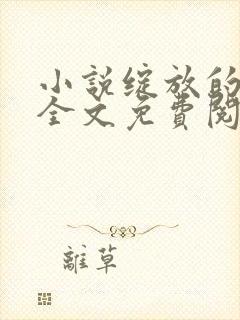 小說綻放的
全文免費閱
離草